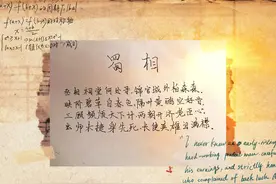 蜀相
丞相祠堂何处寻,锦官城外柏森森,
映阶碧草自春色,隔叶黄鹂空好音.
三顾频烦天下计,两朝开济老臣心,
出师未捷身先死,长使英雄泪满襟.
I never knew an early-rising
hard-working prudent man caref
his earnings, and strictly hones
who complained of back luck